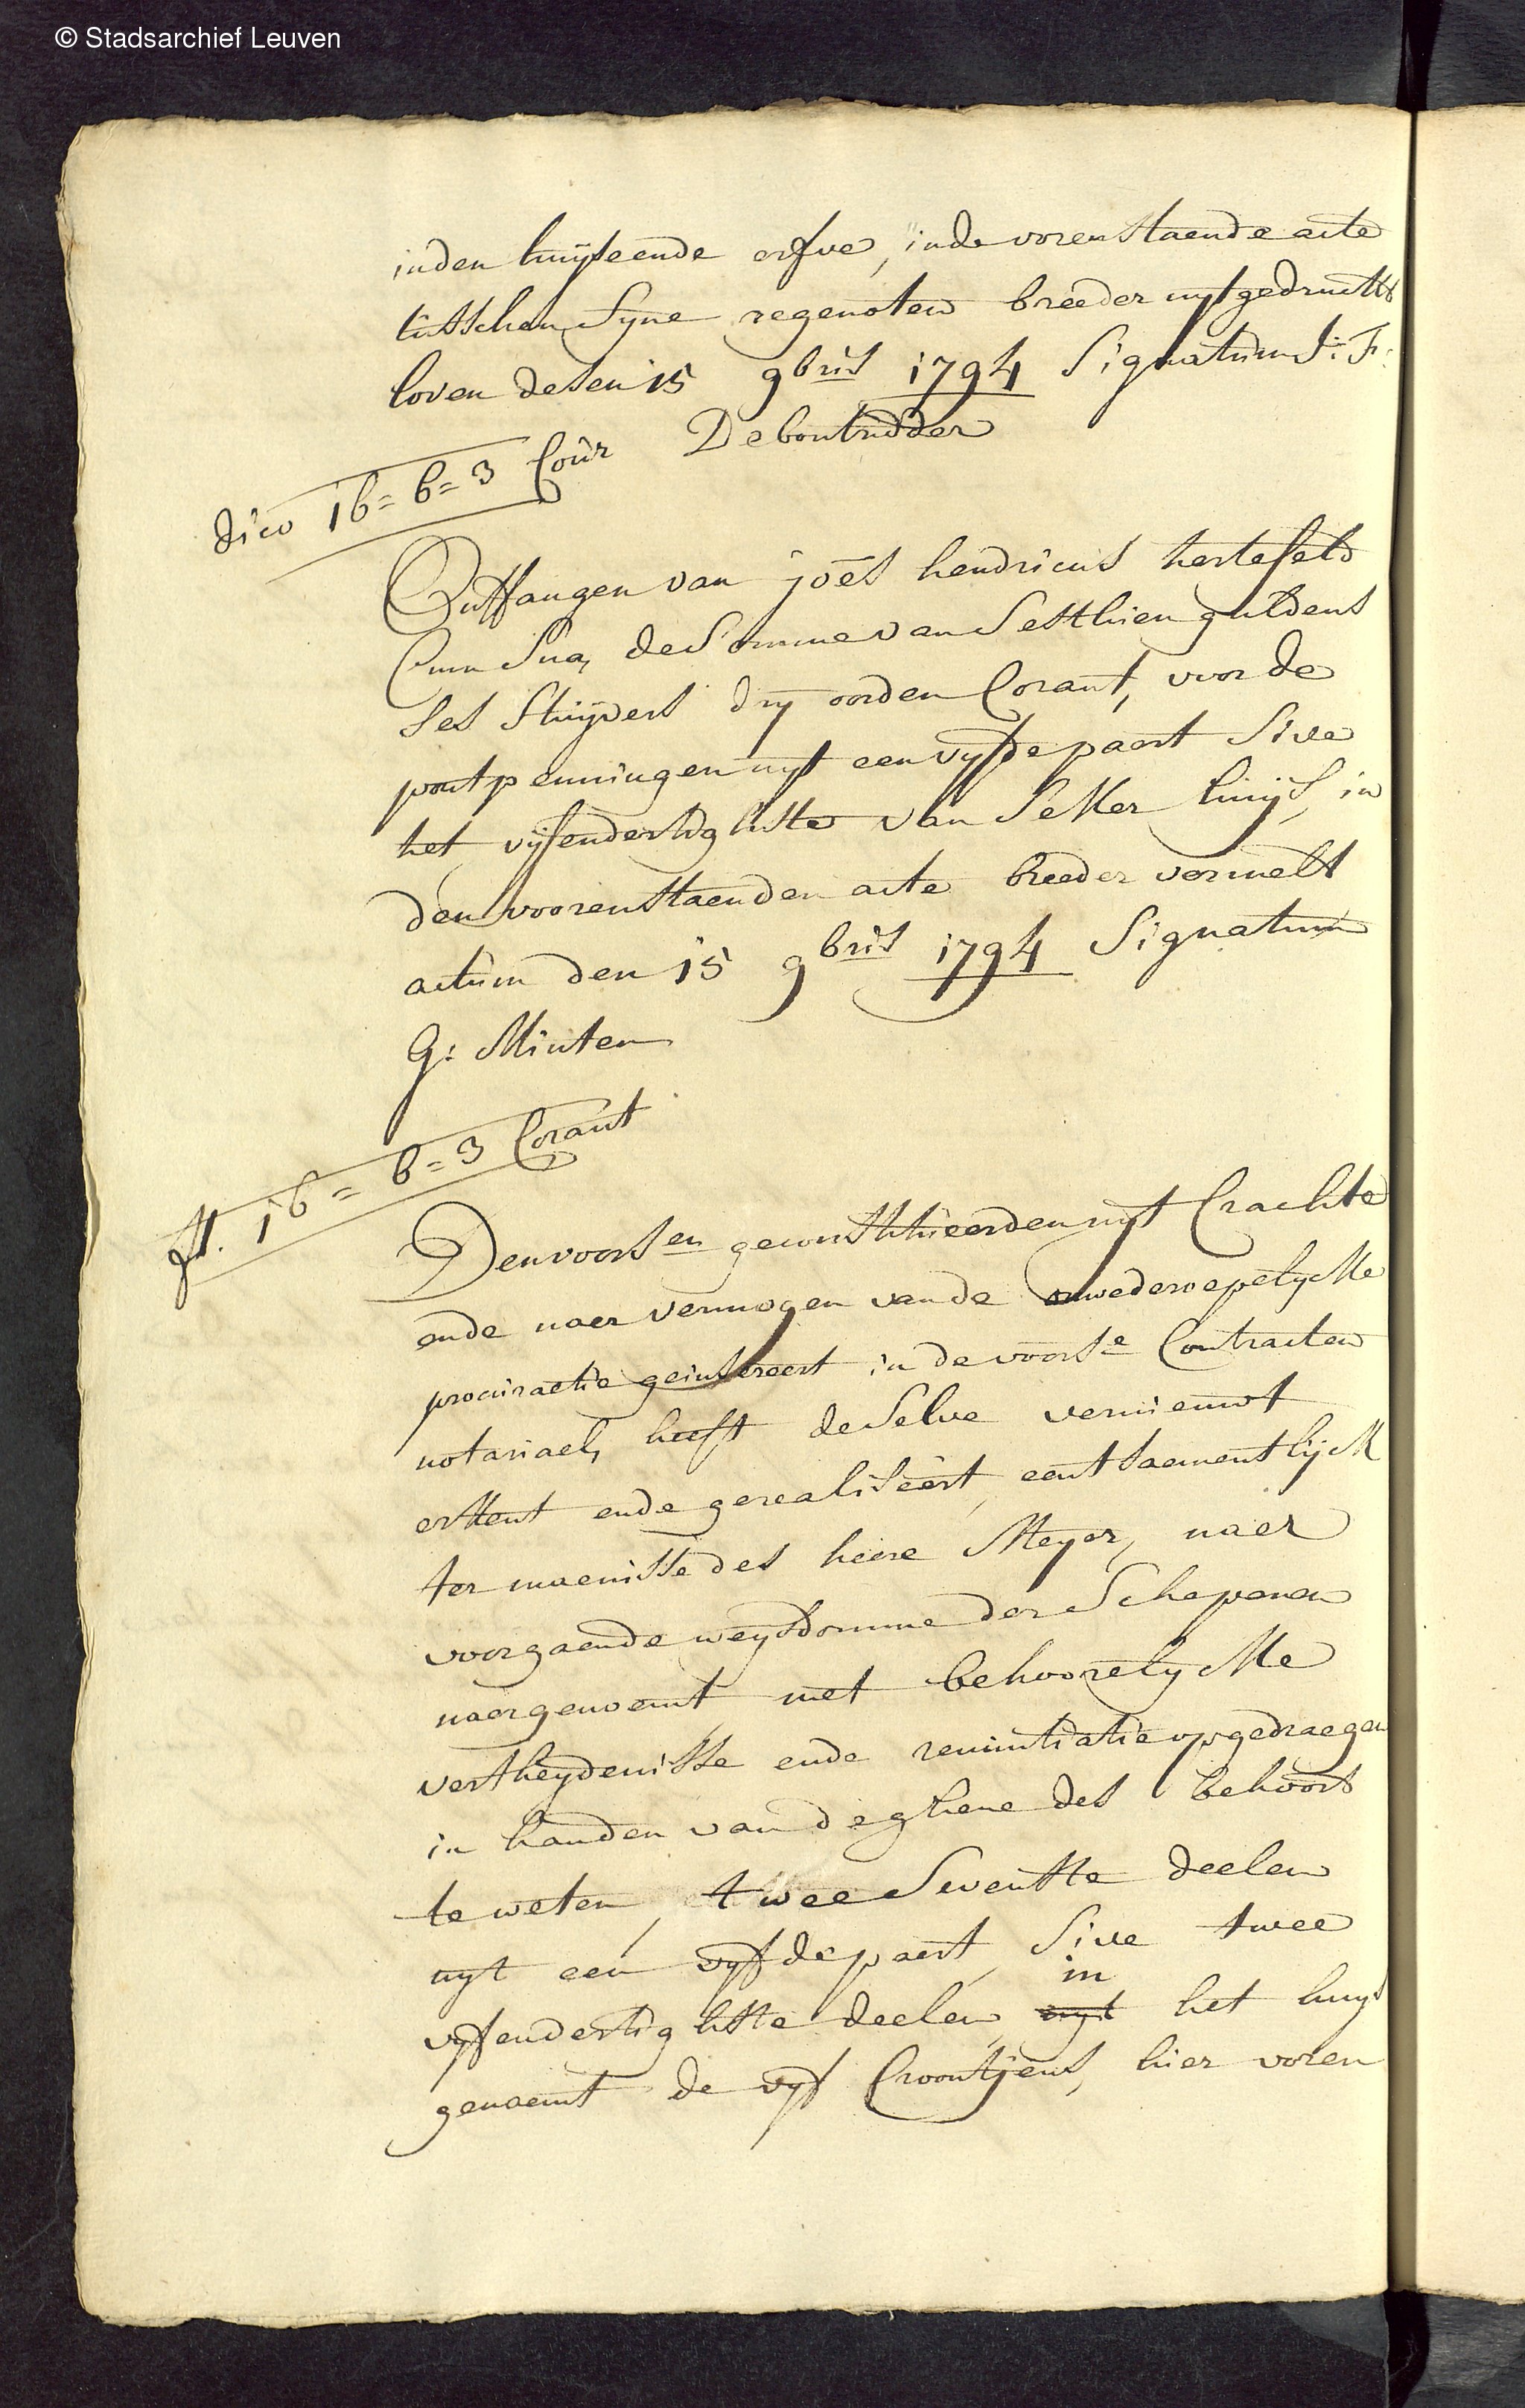 © Stadsarchief Leuven
inden huijse ende erfve, inde voren staende acte
tusschen syne regenoten breeder uytgedruckt
loven desen 15 9bris 1794 Signatum J: F:
Debontridder
dico 16=6=3 Cour
Ontfangen van joēs hendricus hertefeld
Cum Sua, de Somme van Sesthien guldens
ses stuijvers dry oorden Corant, voor de
pontpenningen uyt een vyfde paert Sive
het vijfendertighste van Seker huijs, in
den voorenstaenden acte breeder vermelt
actum den 15 9bris 1794 Signatum
G: Minten
fl. 16=6=3 Corant
Den voorsen geconstitueerden uyt Crachte
ende naer vermogen van de onwederoepelycke
procuratie geinsereert in de voorse Contracten
notariael, heeft de Selve vernieuwt
erkent ende gerealiseert, eentsaementlijck
ter maenisse des heere Meyer, naer
voorgaende weysdomme der Schepenen
naergenoemt met behoorelycke
vertheydenisse ende renuntiatie opgedraegen
in handen van deghene des behoort
te weten, twee Sevenste deelen
uyt een vyfde paert, Sive twee
in
vyfendertighste deelen, uyt het huys
genaemt de vyf Croontjens, hier voren